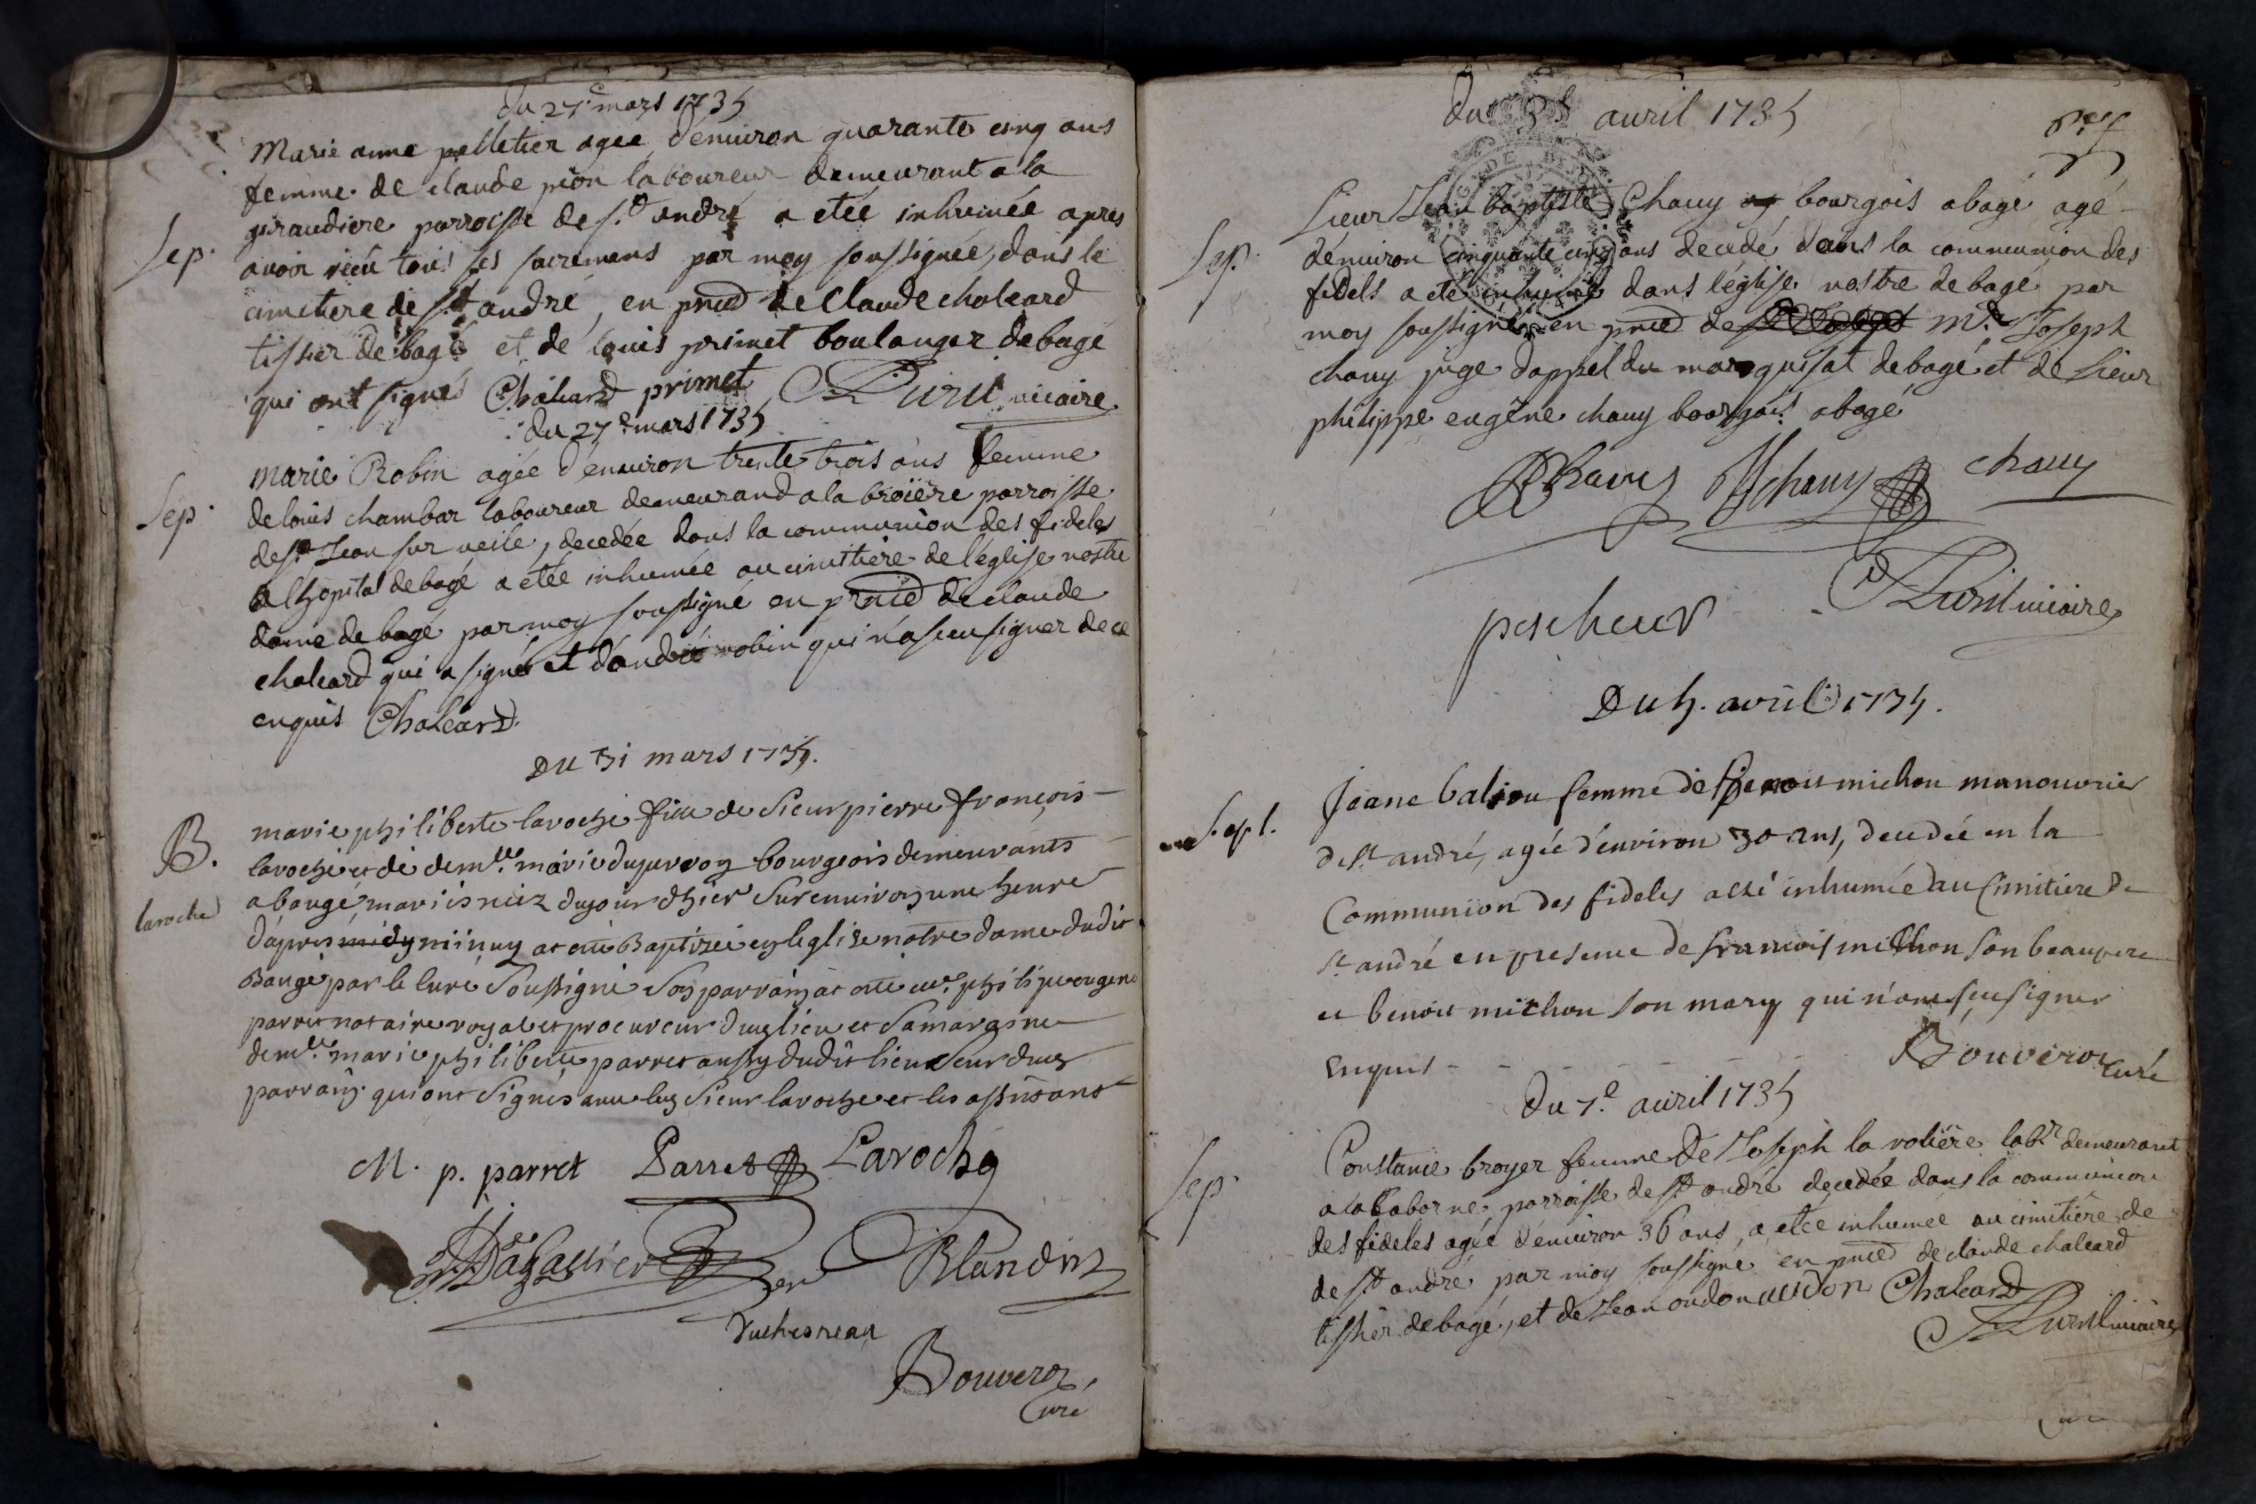 du 27e mars 1735
Marie anne pelletier agee d'enuiron quarante cinq ans
femme de claude pion laboureur demeurant a la
giraudiere parroisse de st andré a etée inhumée apres
Sep.
auoir reçû tous ses sacremens par moy soussignée, dans le
cimetiere de st andré, en pnce de Claude chaleard
tissier de bagé et de louis primet boulanger de bagé
qui ont signés Chaleard primet vicaire
du 27e mars 1735
marie Robin agée d'enuiron trente trois ans femme
Sep.
de louis chambar laboureur demeurand a la broiiere parroisse
de st Jean sur veile, decedée dans la communion des fideles
a lhopital de bagé a etée inhumée au cimitiere de l'église nostre
dame de bagé par moy soussigné en pnce de claude
chaleard qui a signé et d'andré robin qui n'a sceu signer de ce
enquis Chaleard
Du 31 mars 1735.
B.
laroche
marie philiberte laroche fille de sieur pierre françois
laroche et de demlle marie duperroy bourgeois demeurants
a baugé mariés néez du jour d'hier sur enuiron une heure
d'apres midy minuy at eté Baptizée en leglise notre dame dudit
Baugé par le curé soussigné son parrain at eté me philipe eugene
parret notaire royal et procureur dud lieu et sa maraine
demlle marie philiberte parret aussy dudit lieu seur dud
parrain qui ont signés avec led sieur laroche et les assistans
M. p. parret Parret Laroche
Blandin
Duchesneau
Bouveron
Curé
du avril 1735
Sieur Jean baptiste Chauy bourgois a bagé agé
Sep.
d'enuiron cinquante cinq ans decedé dans la communion des
fidels a eté inhumé dans l'église nostre de bagé par
moy soussigné en pnce de Mr Joseph
chauy juge d'appel du marquisat de bagé et de sieur
philippe eugêne chauy bourgois a bagé
Chauy Jchauy chauy
pescheur
vicaire
Du 5. avril 1735.
Sept.
Jeane balion femme de benoit michon manouvrier
de st andré, agée d'environ 30 ans, decedée en la
Communion des fideles a esté inhumée au simitiere de
st andré en presence de francois michon son beaupere
et benoit michon son mary qui n'ont sceu signer
enquis - - - - - Bouveron
curé
Du 7e avril 1735
Sep.
Constance broyer femme de Joseph la volière labr demeurant
a la baborne parroisse de st andré decedée dans la communion
des fideles agée d'enuiron 36 ans, a etée inhumée au cimitière de
de st andré par moy soussigné en pnce de claude chaleard
tissier de bagé, et de Jean oudon oudon Chaleard
vicaire